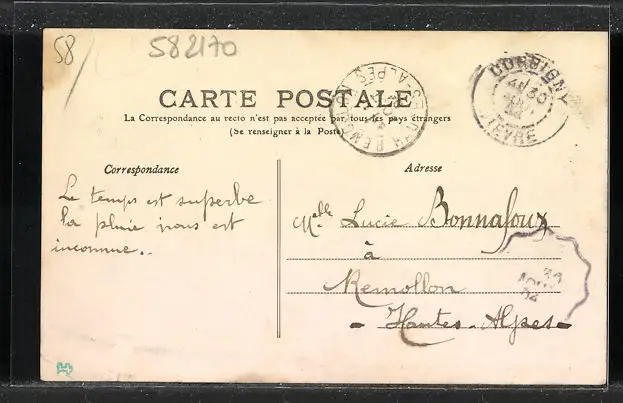 58
582170
CARTE POSTALE
La Correspondance au recto n'est pas acceptée par tous les pays étrangers
(Se renseigner à la Poste)
Correspondance
Adresse
Le temps est superbe
la pluie nous est
inconnue..
Melle Lucie Bonnafoux
à
Remollon
- Hautes-Alpes -
CORBIGNY
NIEVRE